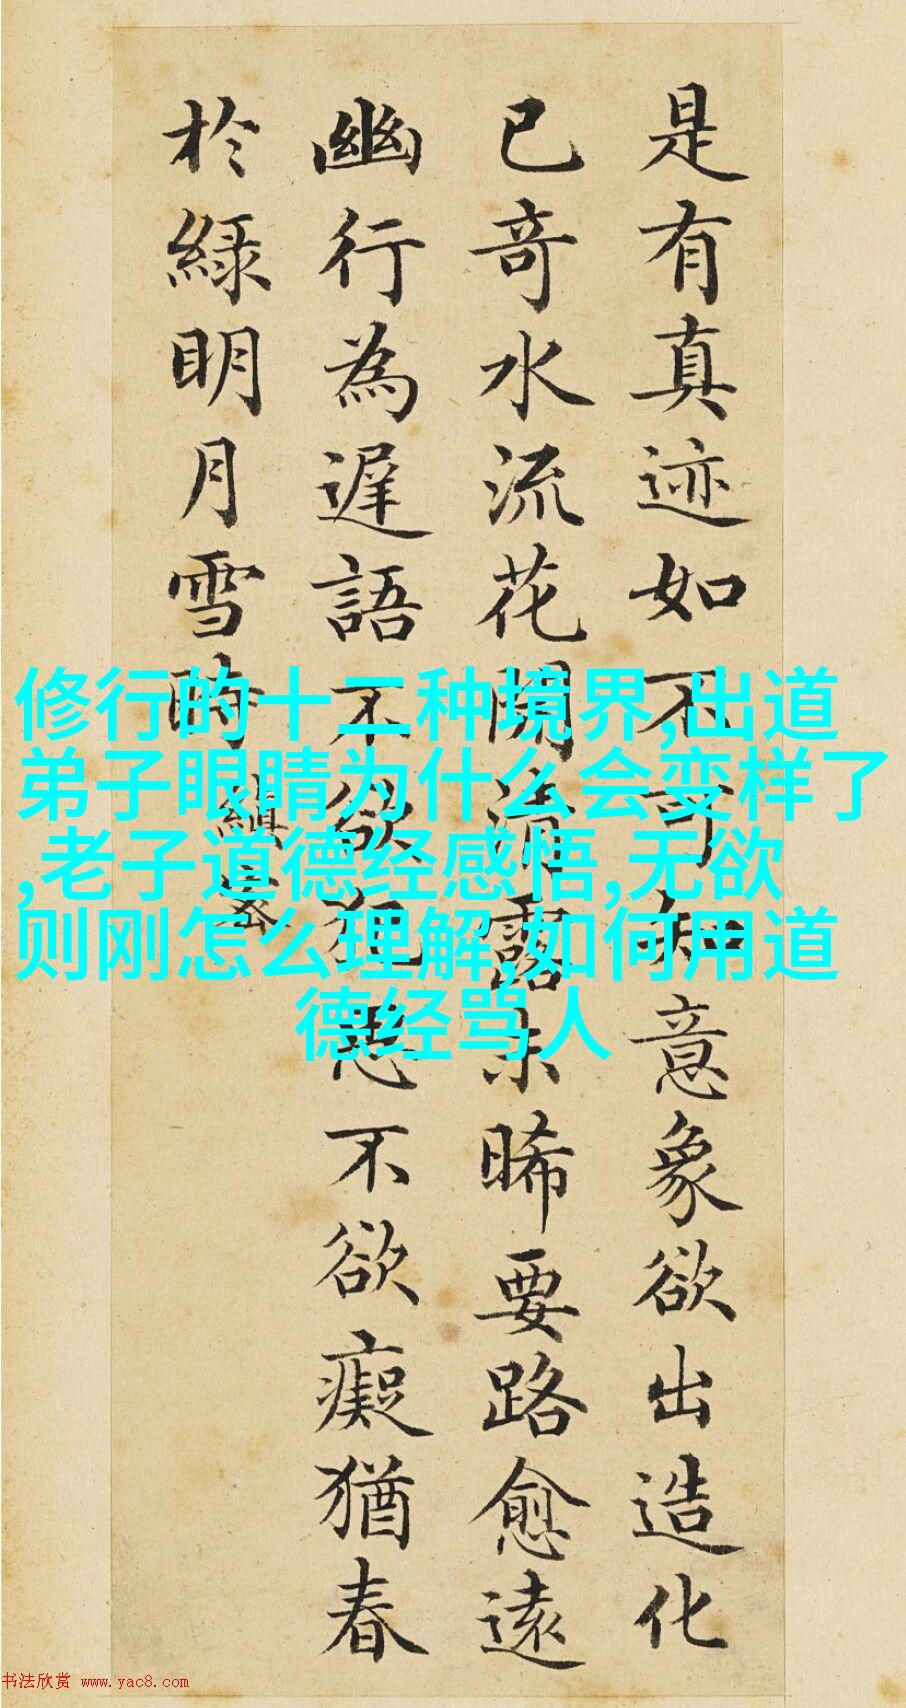 是有真迹如不可知意象欲出造化
已奇水流花開清露未晞要路愈遠
幽行為遲語不欲犯思不欲癡猶春
於綠明月雪時 縝密
修行的十二种境界,出道
弟子眼睛为什么会变样了
,老子道德经感悟,无欲
则刚怎么理解,如何用道
德经骂人
书法欣赏 www.yac8.com